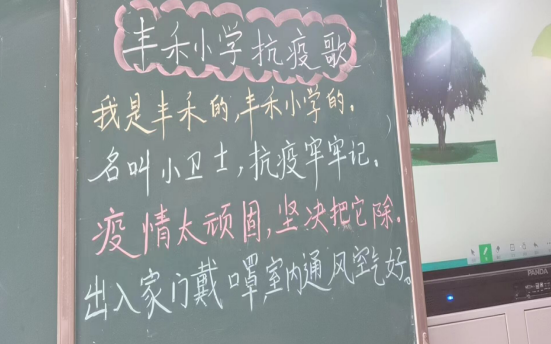 丰禾小学抗疫歌
我是丰禾的,丰禾小学的。
名叫小卫士,抗疫牢牢记。
疫情太顽固,坚决把它除。
出入家门戴口罩,室内通风空气好。
PANDA